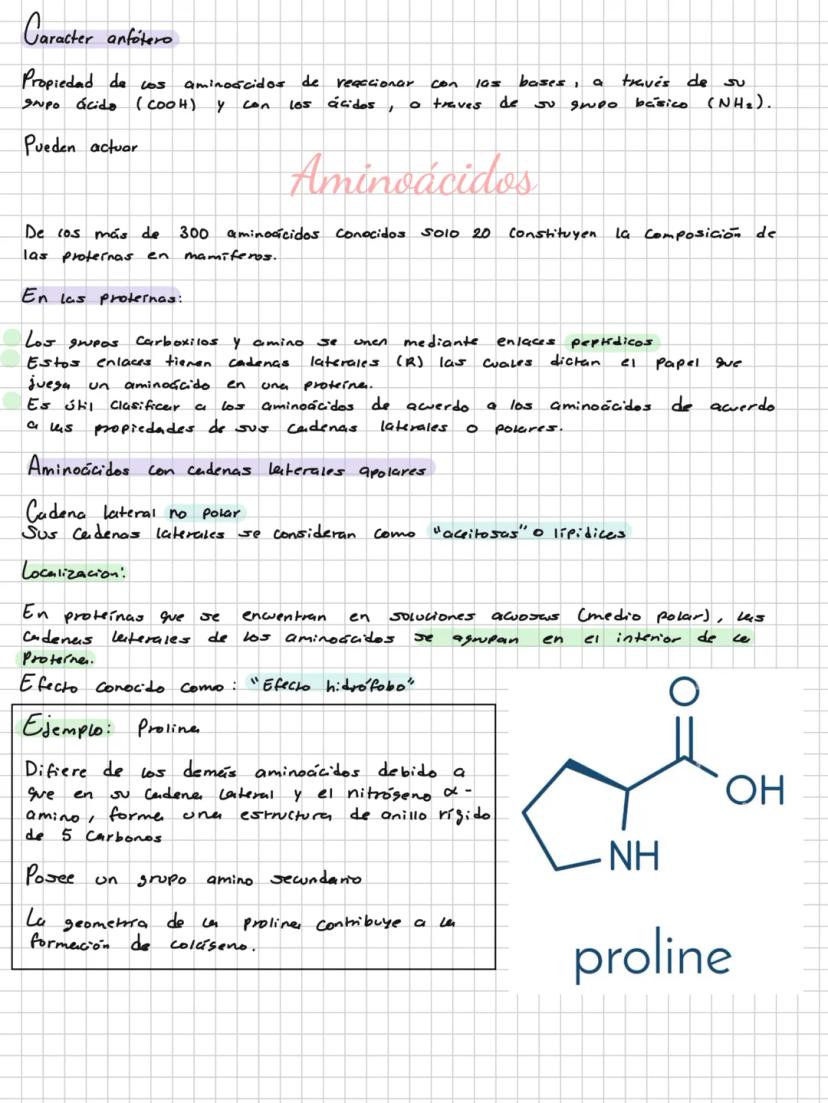 Caracter anfótero
Propiedad de los aminoácidos de reaccionar con las bases, a través de su
grupo ácido (COOH) y con los ácidos, a traves de su grupo básico (NH₂).
Pueden actuar
Aminoácidos
De los más de 300 aminoácidos conocidos solo 20 constituyen la composición de
las proteínas en mamíferos.
En las proteínas:
Los grupos Carboxilos y amino se unen mediante enlaces peptídicos
Estos enlaces tienen cadenas laterales (R) las cuales dictan el papel que
juega un aminoácido en una proteína.
Es útil clasificar a los aminoácidos de acuerdo a los aminoácidos de acuerdo
a las propiedades de sus cadenas laterales o polares.
Aminoácidos con cadenas laterales apolares
Cadena lateral no polar
Sus cadenas laterales se consideran como "aceitosas" o lípidicas
Localizacion:
En proteínas que se encuentran en soluciones acuosas (medio polar), las
cadenas laterales de los aminoácidos se agrupan en el interior de la
Proteína.
Efecto conocido como: "Efecto hidrófobo"
Ejemplo: Prolina
Difiere de los demás aminoácidos debido a
que en su cadena lateral y el nitrógeno α-
amino, forma una estructura de anillo rígido
de 5 Carbonos
Posee un grupo amino secundario
La geometría de la prolina contribuye a la
formación de colágeno.
O
OH
NH
proline